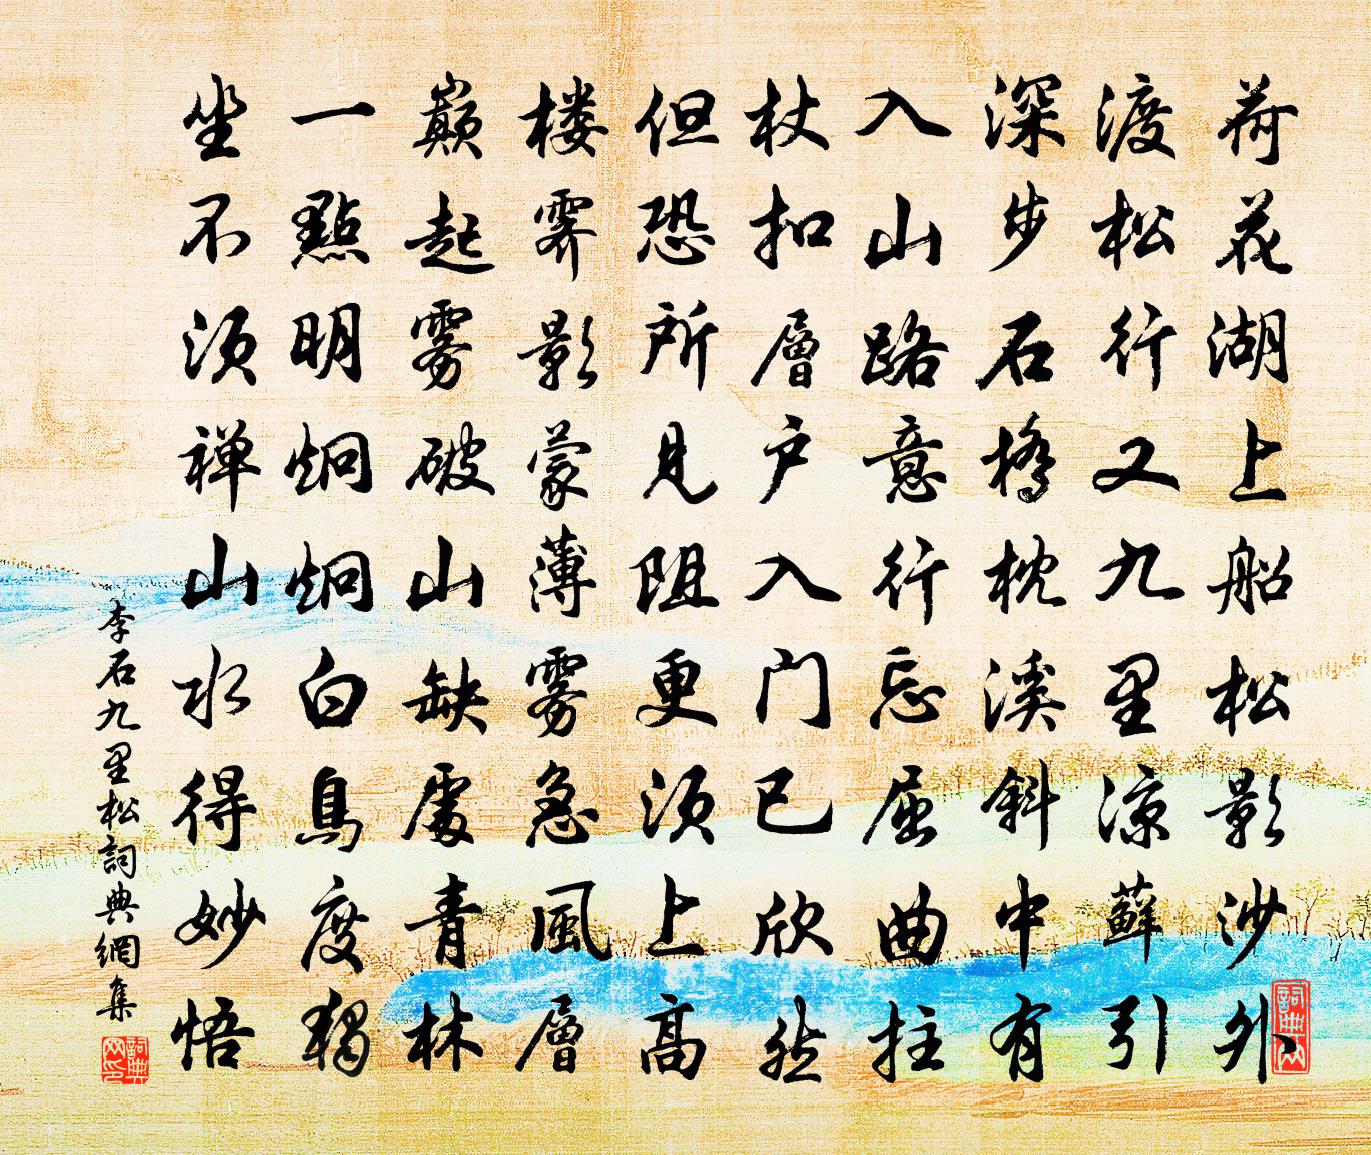 荷花湖上船松影沙外
渡松行又九里涼蘚引
深步石橋枕溪斜中有
入山路意行忘屈曲拄
杖扣層户入门已欣然
但恐所見阻更須上高
楼霁影蒙薄雾急風層
巔起雾破山缺處青林
一點明炯炯白鳥度獨
坐不須禅山水得妙悟
李石九里松詞典網集
詞典网
詞典网印